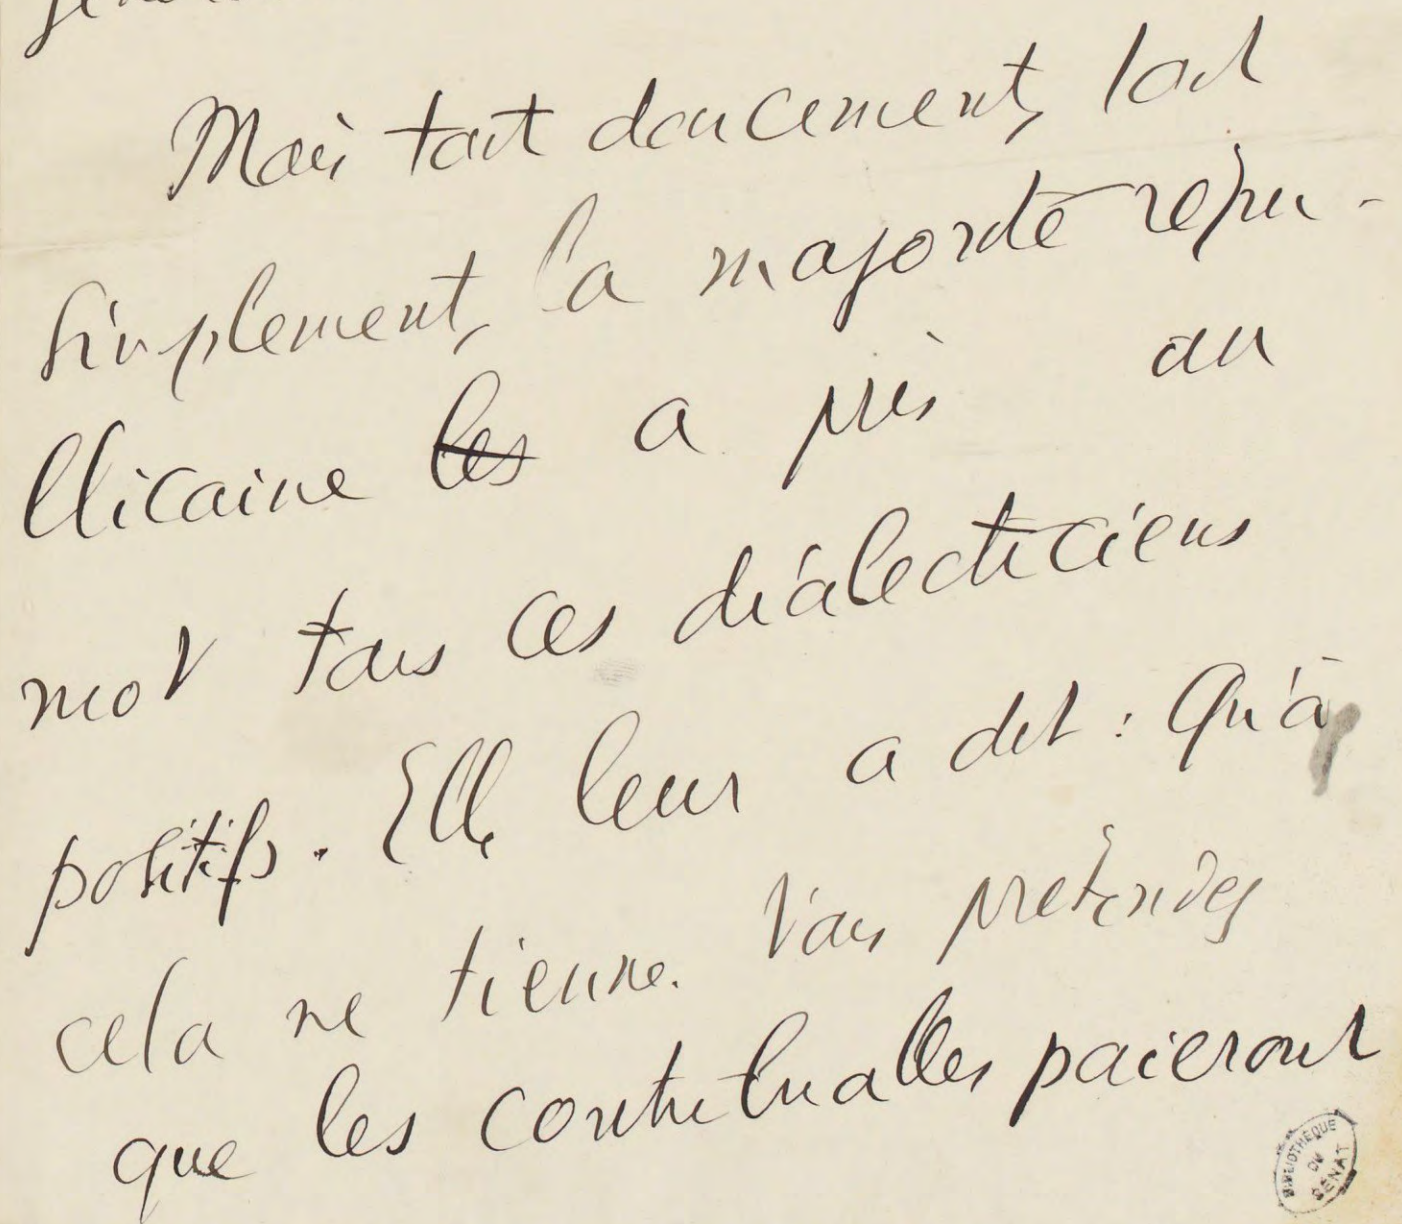 Mais tout doucement, tout
simplement, la majorité répu-
blicaine les a pris au
mot tous ces dialecticiens
positifs. Elle leur a dit : Qu'à
cela ne tienne. Vous prétendez
que les contribuables paieront
BIBLIOTHÈQUE
DU
SÉNAT